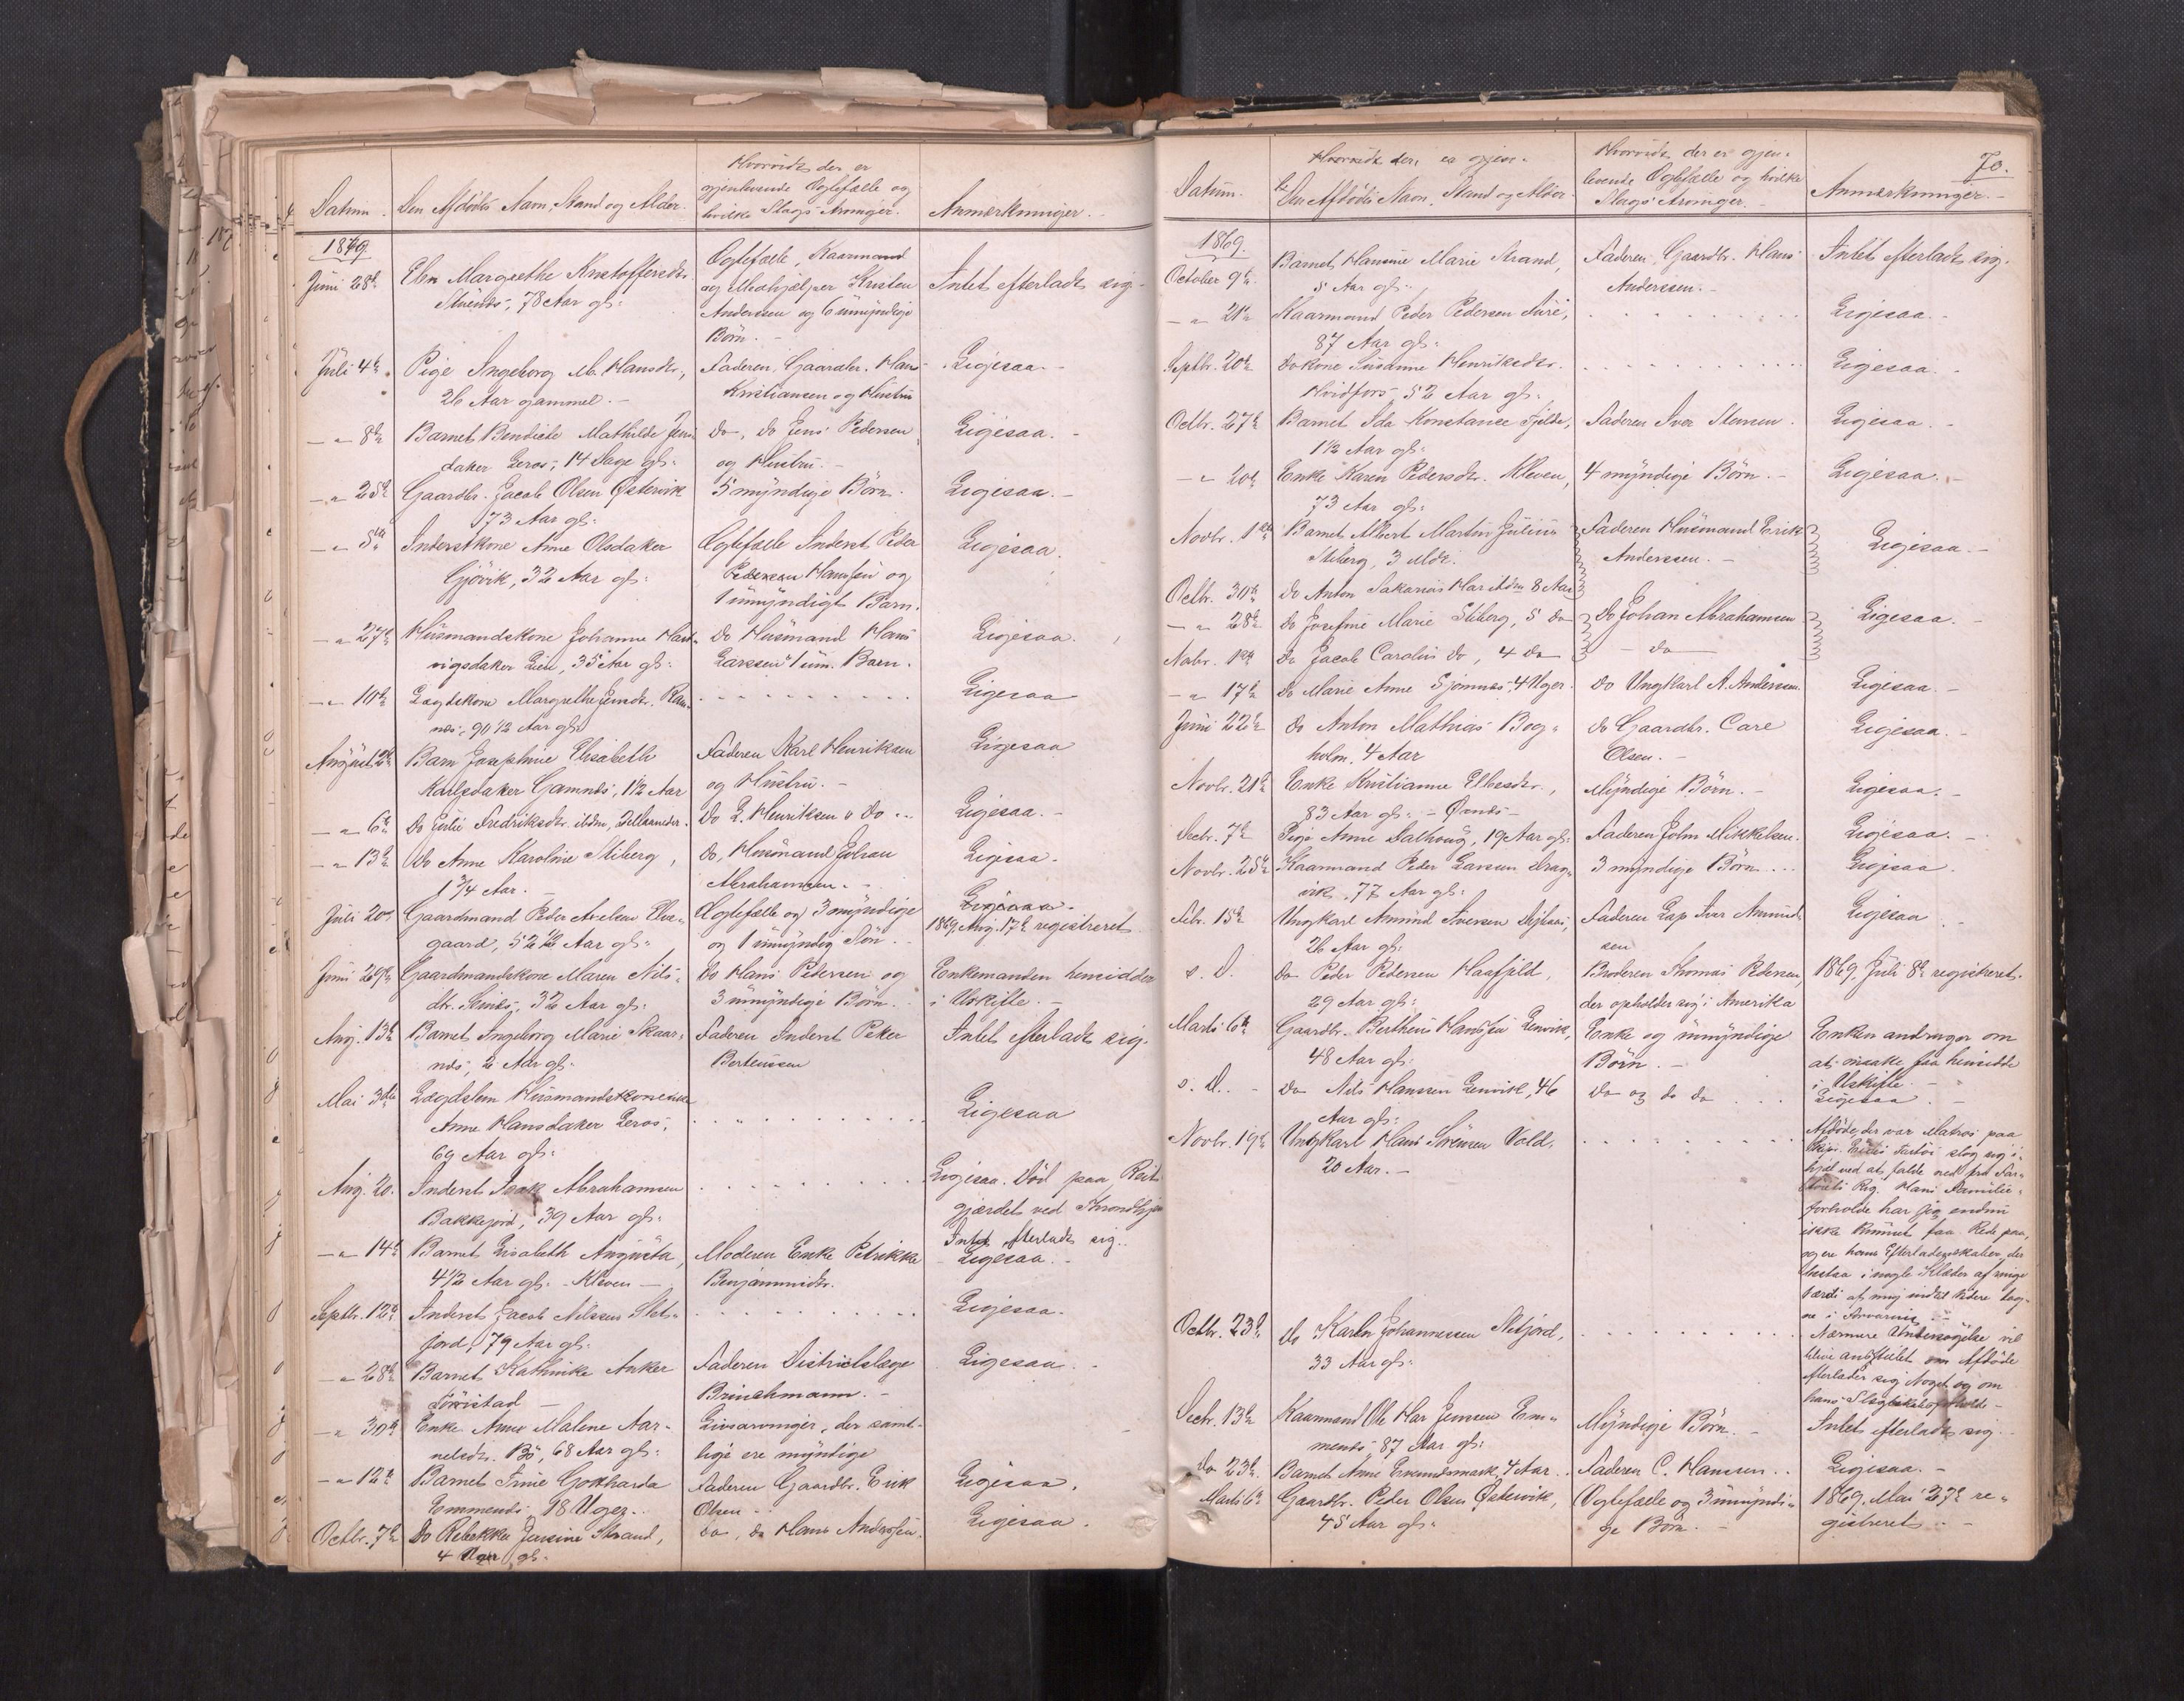 Datum.
Den Afdødes Navn, Stand og Alder.
Hvorvidt der er
gjenlevende Ægtefælle og
hvilke Slags Arvinger.
Anmærkninger.
1869
Juni 28de
Elen Margrethe Kristoffersdtr.
78 Aar gl:
Ægtefælle, Kaarmand
og Medhjælper Kristen
Anderssen og 6 umyndige
Børn.
Intet efterladt sig.
Juli 4de
Pige Ingeborg M. Hansdtr,
26 Aar gammel.
Faderen, Gaardbr. Hans
Kristiansen og Hustru
Ligesaa.
- " 8de
Barnet Bendicte Mathilde Jens
daker Leros, 14 Dage gl:
do, do Jens Pedersen
og Hustru.
Ligesaa.
- " 25de
Gaardbr. Jacob Olsen Østervik
73 Aar gl:
5 myndige Børn.
Ligesaa.
- " 5te
Inderstkone Anne Olsdaker
Gjövik, 32 Aar gl:
Ægtefælle Inderst Peder
Pedersen Hanssen og
1 umyndigt Barn.
Ligesaa.
- " 27de
Husmandskone Johanne Hart-
vigsdaker Lien, 35 Aar gl:
do Husmand Hans
Larssen 1 um. Barn.
Ligesaa.
- " 10de
Lægdskone Margrethe Jensdtr. Ram-
nes, 90 1/2 Aar gl:
Ligesaa
August 2de
Barn Josephine Elisabeth
Karlsdaker Gamnes, 1 1/2 Aar
Faderen Karl Henriksen
og Hustru.
Ligesaa
- " 6te
Do Julie Fredriksdtr. ibdm,
do L. Henriksen o do
Ligesaa.
- " 13de
Do Anne Karoline Stiberg,
1 3/4 Aar.
do, Husmand Johan
Abrahamsen.
Ligesaa.
Juli 20.
Gaardmand Peder Axelsen Elve-
gaard, 52 1/2 Aar gl:
Ægtefælle og 3 myndige
og 1 umyndig Søn.
Ligesaa.
1869, Aug. 17de registreret
Juni 29de
Gaardmandskone Maren Nils-
dtr. 32 Aar gl:
do Hans Pedersen og
3 umyndige Børn.
Enkemanden hensidder
i Uskifte.
Aug. 13de
Barnet Ingeborg Marie Skaar-
nes, 2 Aar gl:
Faderen Inderst Peker
Berteussen
Intet efterladt sig.
Mai 3die
Lægdslem Husmandskone
Anne Hansdaker Leros,
69 Aar gl:
Ligesaa
Aug. 20.
Inderst Isak Abrahamsen
Bakkejord, 39 Aar gl:
Ligesaa. Død paa Reit-
gjærdet ved Trondhjem
Intet efterladt sig.
- " 14de
Barnet Elisabeth Augusta,
4 1/2 Aar gl: Kleven
Moderen Enke Petrikke
Benjaminsdtr.
Ligesaa.
Septbr. 12te
Inderst Jacob Nilssen Slet-
jord, 79 Aar gl:
Ligesaa.
- " 28de
Barnet Kathinke Anker
Faderen Districtslæge
Brinchmann.
Ligesaa.
- " 30te
Enke Anne Malene Aar-
nelsdtr. Bø, 68 Aar gl:
Livsarvinger, der samt-
lige ere myndige
- " 12te
Barnet Trine Gotharda
Emmenes 18 Uger.
Faderen Gaardbr. Erik
Olsen
Ligesaa.
Octbr. 7de
Do Rebekka Jensine Strand,
4 Uger gl:
do, do Hans Anderssen.
Ligesaa.
70.
Datum.
Hvorvidt der er gjen-
Den Afdødes Navn, Stand og Alder
Hvorvidt der er gjen-
levende Ægtefælle og hvilke
Slags Arvinger.
Anmærkninger.
1869.
October 9de
Barnet Hansine Marie Strand,
5 Aar gl:
Faderen, Gaardbr. Hans
Anderssen.
Intet efterladt sig.
- " 21de
Kaarmand Peder Pedersen
87 Aar gl:
Ligesaa.
Septbr. 20de
do kone Susanne Henriksdtr.
Hvidfors, 52 Aar gl:
Ligesaa.
Octbr. 27de
Barnet Ida Konstance Fjelde,
1 1/2 Aar gl:
Faderen Iver Stensen.
Ligesaa.
- " 20de
Enke Karen Pedersdtr. Kleven,
73 Aar gl:
4 myndige Børn.
Ligesaa.
Novbr. 1ste
Barnet Albert Martin Julius
Stiberg, 3 Mdr.
Faderen Husmand Erik
Anderssen.
Ligesaa.
Octbr. 30te
do Anton Sakarias 8 Aar
- " 28de
do Josefine Marie Stiberg, 5 do
do Johan Abrahamsen
Ligesaa.
Nobr. 1ste
do Jacob Carolus do, 4 do
- do
- " 17de
do Marie Anne Gjömnes, 4 Uger.
do Ungkarl A. Andersen.
Ligesaa.
Juni 22de
do Anton Mathias Beg-
holm, 4 Aar
do Gaardbr. Care
Olsen.
Ligesaa.
Novbr. 21de
Enke Kristianne Eliasdtr.,
83 Aar gl: - Ørnes -
Myndige Børn.
Ligesaa.
Decbr. 7de
Pige Anne Dalhoug, 19 Aar gl:
Faderen John Mikkelsen.
Ligesaa.
Novbr. 25de
Kaarmand Peder Larssen Drag-
vik, 77 Aar gl:
3 myndige Børn.
Ligesaa.
Febr. 15de
Ungkarl Amund Iversen
26 Aar gl:
Faderen Lap Ivar Amund-
sen
Ligesaa
s. D.
do Peder Pedersen Haafjeld,
29 Aar gl:
Broderen Thomas Pedersen,
der opholder sig i Amerika
1869, Juli 8de registreret.
Marts 6te
Gaardbr. Bertheus Hanssen Lenvik,
48 Aar gl:
Enke og umyndige
Børn.
Enken andrager om
at maatte faa hensidde
i Uskifte.
s. D.
Do Nils Hanssen Lenvik, 46
Aar gl:
do og do do
Ligesaa.
Novbr. 19de
Ungkarl Hans Vold,
20 Aar.
Afdøde, der var Matros paa
slog sig i-
hjel ved at falde ned fra Far-
töiets Rig. Hans Familie-
forholde har jeg endnu
ikke kunnet faa Rede paa,
og ere hans Efterladenskaber, der
bestaa i nogle Klæder af ringe
Værdi af mig indtil videre tag-
ne i Forvaring
Octbr. 23de
do Karl Johannessen Nesjord,
33 Aar gl:
Nærmere Undersøgelse vil
blive anstillet om Afdøde
efterlader sig Noget og om
hans
Decbr. 13de
Kaarmand Ole Jenssen Em-
menes, 87 Aar gl:
Myndige Børn.
Intet efterladt sig.
do 23de
Barnet Anne 4 Aar
Faderen C. Hanssen.
Ligesaa.
Marts 6te
Gaardbr. Peder Olsen Østervik,
45 Aar gl:
Ægtefælle og 3 umyndi-
ge Børn.
1869, Mai 27de re-
gistreret.